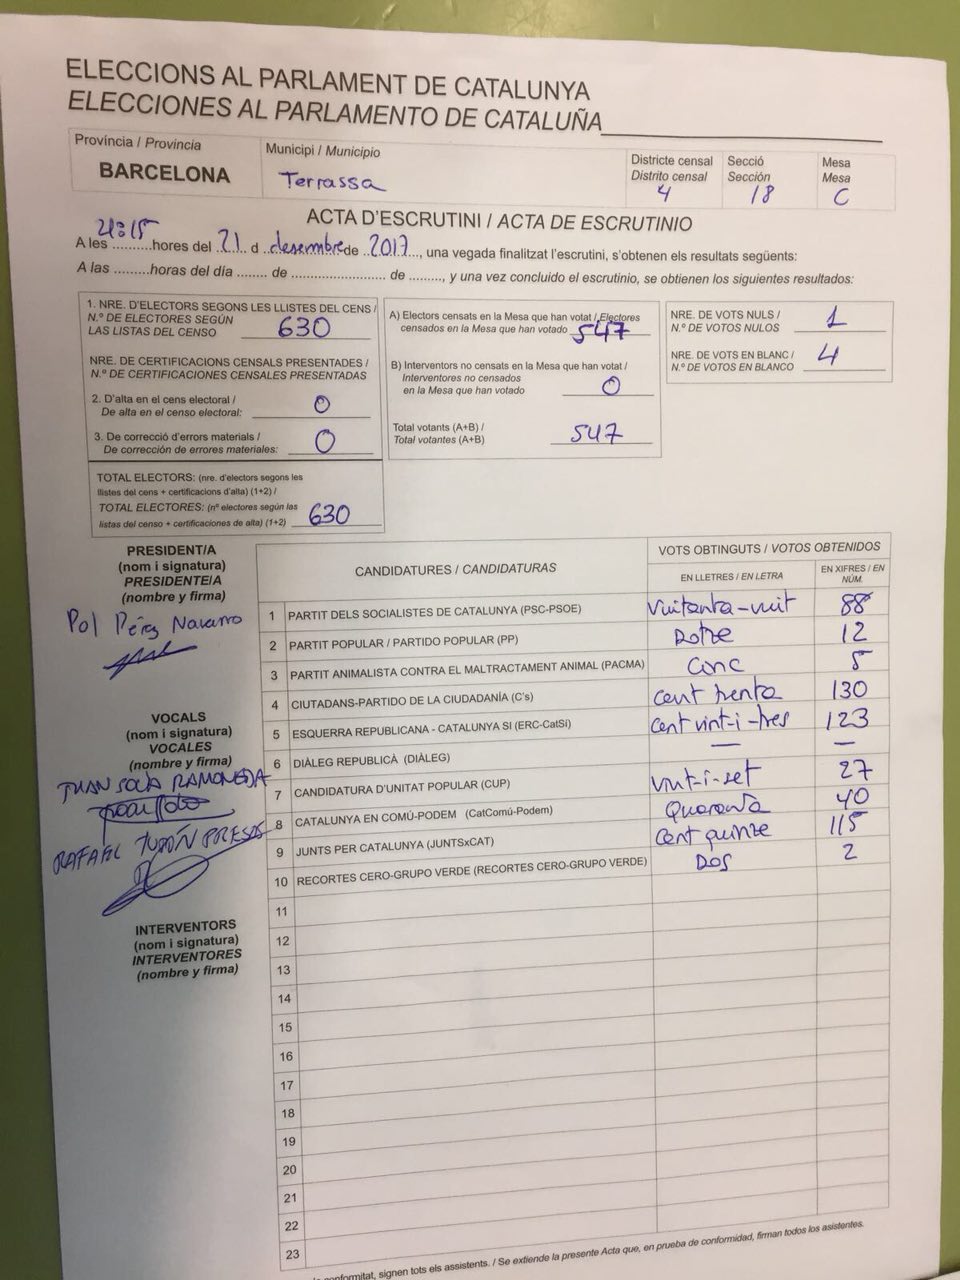 ELECCIONS AL PARLAMENT DE CATALUNYA
ELECCIONES AL PARLAMENTO DE CATALUÑA
Província / Provincia
BARCELONA
Municipi / Municipio
Terrassa
Districte censal
Distrito censal
4
Secció
Sección
18
Mesa
Mesa
C
ACTA D'ESCRUTINI / ACTA DE ESCRUTINIO
A les 21:15 hores del 21 d desembre de 2017, una vegada finalitzat l'escrutini, s'obtenen els resultats següents:
A las .........horas del día ........ de ......................... de ........., y una vez concluido el escrutinio, se obtienen los siguientes resultados:
1. NRE. D'ELECTORS SEGONS LES LLISTES DEL CENS /
N.º DE ELECTORES SEGÚN
LAS LISTAS DEL CENSO 630
NRE. DE CERTIFICACIONS CENSALS PRESENTADES /
N.º DE CERTIFICACIONES CENSALES PRESENTADAS
2. D'alta en el cens electoral /
De alta en el censo electoral: 0
3. De correcció d'errors materials /
De corrección de errores materiales: 0
TOTAL ELECTORS: (nre. d'electors segons les
llistes del cens + certificacions d'alta) (1+2) /
TOTAL ELECTORES: (nº electores según las
listas del censo + certificaciones de alta) (1+2) 630
A) Electors censats en la Mesa que han votat / Electores
censados en la Mesa que han votado 547
B) Interventors no censats en la Mesa que han votat /
Interventores no censados
en la Mesa que han votado 0
Total votants (A+B) /
Total votantes (A+B) 547
NRE. DE VOTS NULS /
N.º DE VOTOS NULOS 1
NRE. DE VOTS EN BLANC /
N.º DE VOTOS EN BLANCO 4
PRESIDENT/A
(nom i signatura)
PRESIDENTE/A
(nombre y firma)
Pol Pérez Navarro
VOCALS
(nom i signatura)
VOCALES
(nombre y firma)
RAFAEL
INTERVENTORS
(nom i signatura)
INTERVENTORES
(nombre y firma)
CANDIDATURES / CANDIDATURAS
VOTS OBTINGUTS / VOTOS OBTENIDOS
EN LLETRES / EN LETRA
EN XIFRES / EN
NÚM.
1 PARTIT DELS SOCIALISTES DE CATALUNYA (PSC-PSOE) Vuitanta-vuit 88
2 PARTIT POPULAR / PARTIDO POPULAR (PP) Dotze 12
3 PARTIT ANIMALISTA CONTRA EL MALTRACTAMENT ANIMAL (PACMA) Cinc 5
4 CIUTADANS-PARTIDO DE LA CIUDADANÍA (C's) Cent trenta 130
5 ESQUERRA REPUBLICANA - CATALUNYA SI (ERC-CatSí) Cent vint-i-tres 123
6 DIÀLEG REPUBLICÀ (DIÀLEG) — —
7 CANDIDATURA D'UNITAT POPULAR (CUP) Vint-i-set 27
8 CATALUNYA EN COMÚ-PODEM (CatComú-Podem) Quaranta 40
9 JUNTS PER CATALUNYA (JUNTSxCAT) Cent quinze 115
10 RECORTES CERO-GRUPO VERDE (RECORTES CERO-GRUPO VERDE) Dos 2
11
12
13
14
15
16
17
18
19
20
21
22
23
conformitat, signen tots els assistents. / Se extiende la presente Acta que, en prueba de conformidad, firman todos los asistentes.